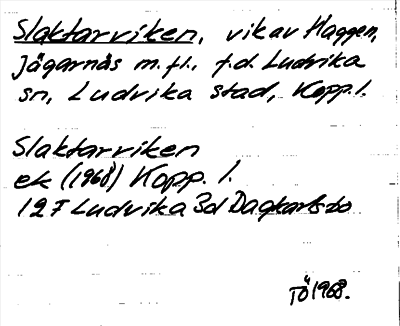 Slaktarviken, vik av Haggen,
Jägarnäs m.fl., f.d. Ludvika
sn, Ludvika stad, Kopp.l.
Slaktarviken
ek (1968) Kopp. l.
12F Ludvika 3d Dagkarlsbo
TÖ 1968.